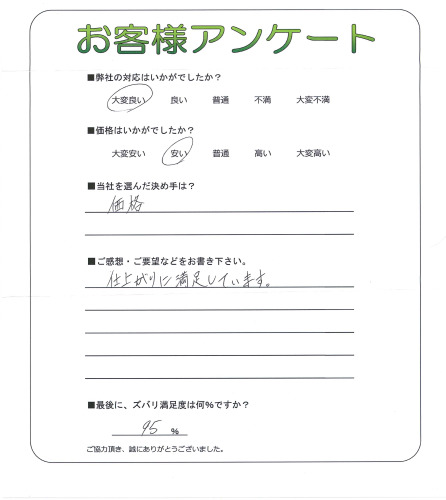 お客様アンケート
■弊社の対応はいかがでしたか？
大変良い 良い 普通 不満 大変不満
■価格はいかがでしたか？
大変安い 安い 普通 高い 大変高い
■当社を選んだ決め手は？
価格
■ご感想・ご要望などをお書き下さい。
仕上がりに満足しています。
■最後に、ズバリ満足度は何%ですか？
95 %
ご協力頂き、誠にありがとうございました。